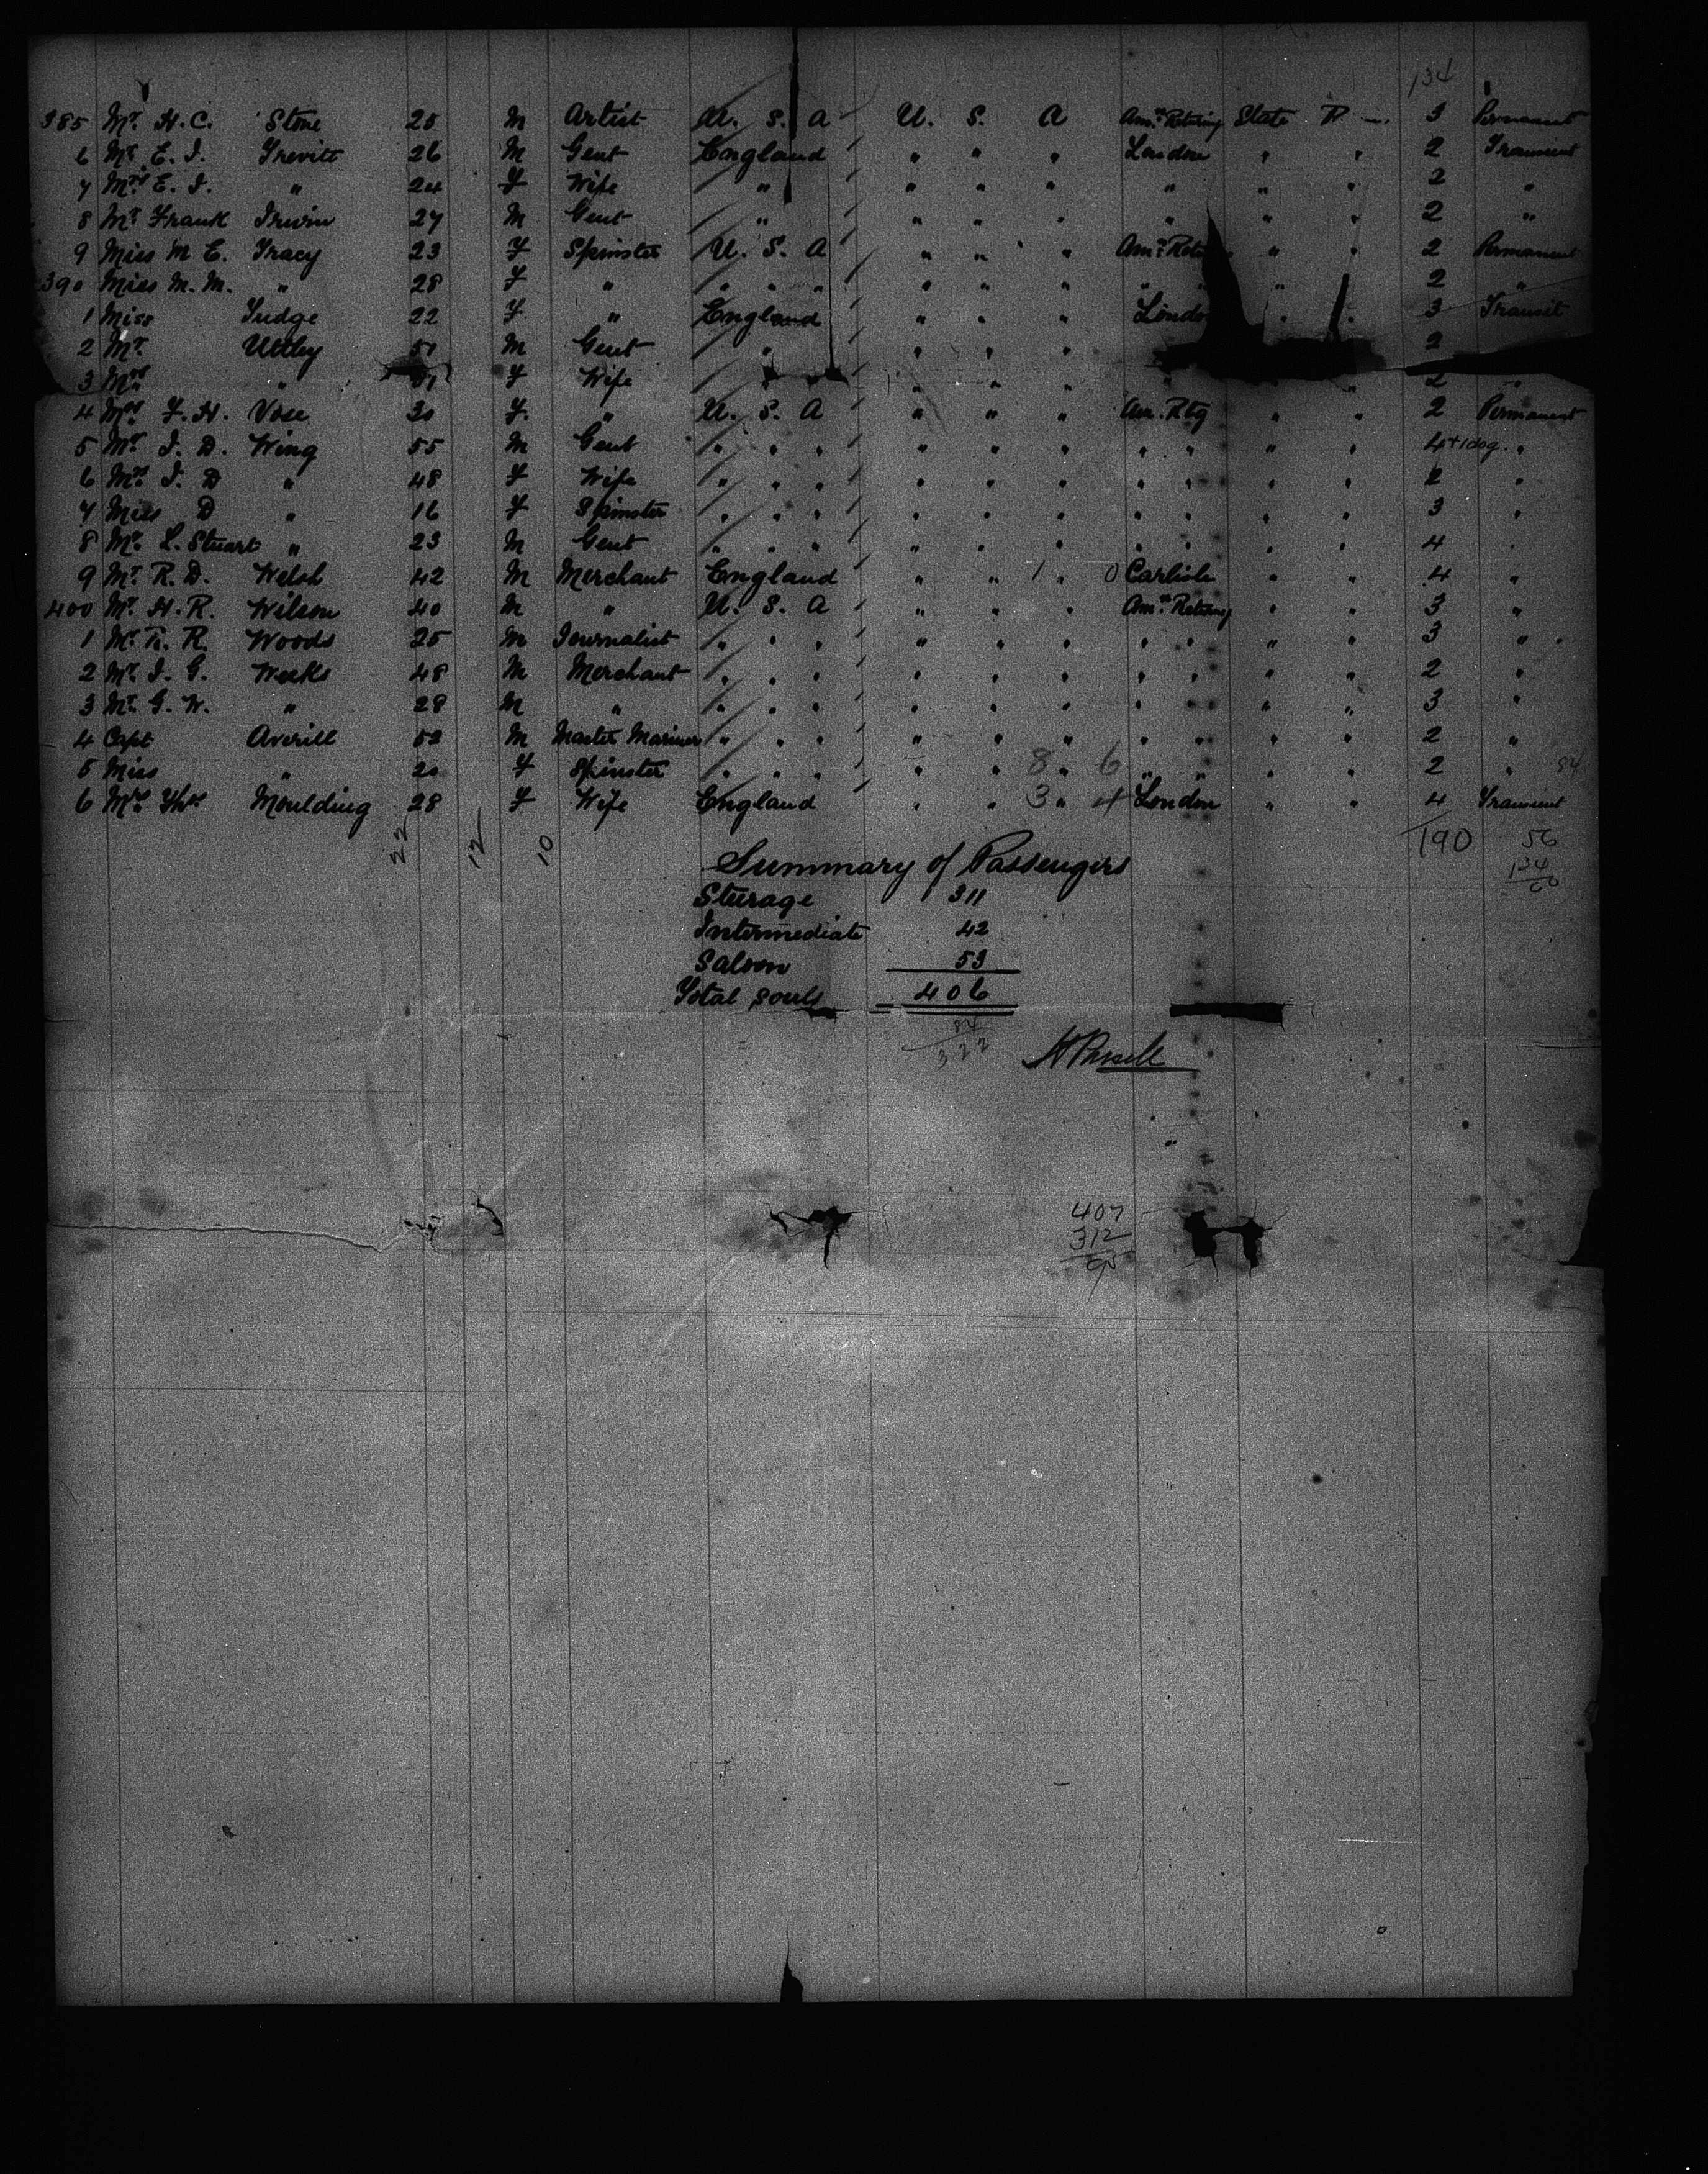 134
385 Mr. H. C. Stone 25 M Artist U. S. A U. S. A Amn Returing State R 3 Permanent
6 Mr. E. J. Trevitt 26 M Gent England " " " London " " 2 Transient
7 Mrs E. J. " 24 F Wife " " " " " " " 2 "
8 Mr. Frank Irwin 27 M Gent " " " " " " " 2 "
9 Miss M E. Tracy 23 F Spinster U. S. A " " " Amn " " 2 Permanent
390 Miss M. M. " 28 F " " " " " " " " " " 2 "
1 Miss Judge 22 F " England " " " Londo " " 3 Transit
2 Mr. Uttley M Gent " " " " 2
3 Mrs " F Wife " " " " " 2 "
4 Mrs F. H. Vose 30 F. " U. S. A " " " Am. Rtg " " 2 Permanent
5 Mr J. D. Wing 55 M Gent " " " " " " " " " " 4+1dog. "
6 Mrs J. D " 48 F Wife " " " " " " " " " " 2 "
7 Miss D " 16 F Spinster " " " " " " " " " " 3 "
8 Mr. L. Stuart " 23 M Gent " " " " " " " " " " 4 "
9 Mr R. D. Welsh 42 M Merchant England " " 1 " 0 Carlisle " " 4 "
400 Mr. H. R. Wilson 40 M " U. S. A " " " Amn Returing " " 3 "
1 Mr. R. R. Woods 25 M Journalist " " " " " " " " " " 3 "
2 Mr. J. G. Weeks 48 M Merchant " " " " " " " " " " 2 "
3 Mr. G. W. " 28 M " " " " " " " " " " " 3 "
4 Capt Averill 52 M Master Mariner " " " " " " " " " " 2 "
5 Miss " 20 F Spinster " " " " " 8 " 6 " " " " 2 " 84
6 Mrs Thos Moulding 28 F Wife England " " 3 " 4 London " " 4 Transient
22 12 10 190 56
134
Summary of Passengers
Sturage 311
Intermediate 42
Saloon 53
Total souls 406
84
322
407
312
95